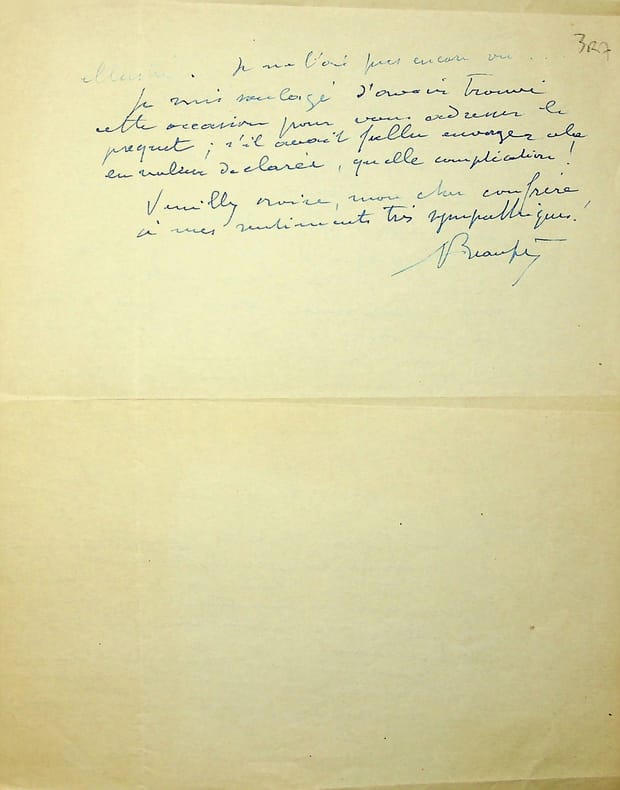 3R7
Je ne l'ai pas encore vu ...
Je suis soulagé d'avoir trouvé
cette occasion pour vous adresser le
paquet ; s'il avait fallu envoyer cela
en valeur déclarée, quelle complication !
Veuillez croire, mon cher confrère
à mes sentiments très sympathiques.